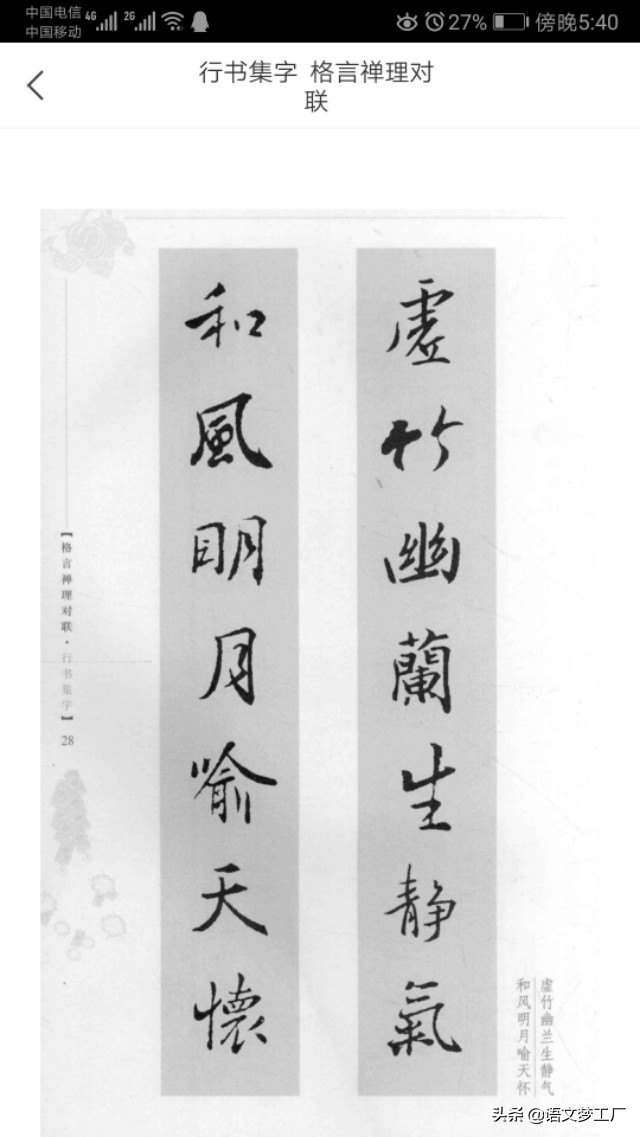 中国电信 4G 2G 27% 傍晚5:40
中国移动
行书集字 格言禅理对
联
虚竹幽蘭生静氣
和風明月喻天懷
【格言禅理对联·行书集字】 28
虚竹幽兰生静气
和风明月喻天怀
头条 @语文梦工厂